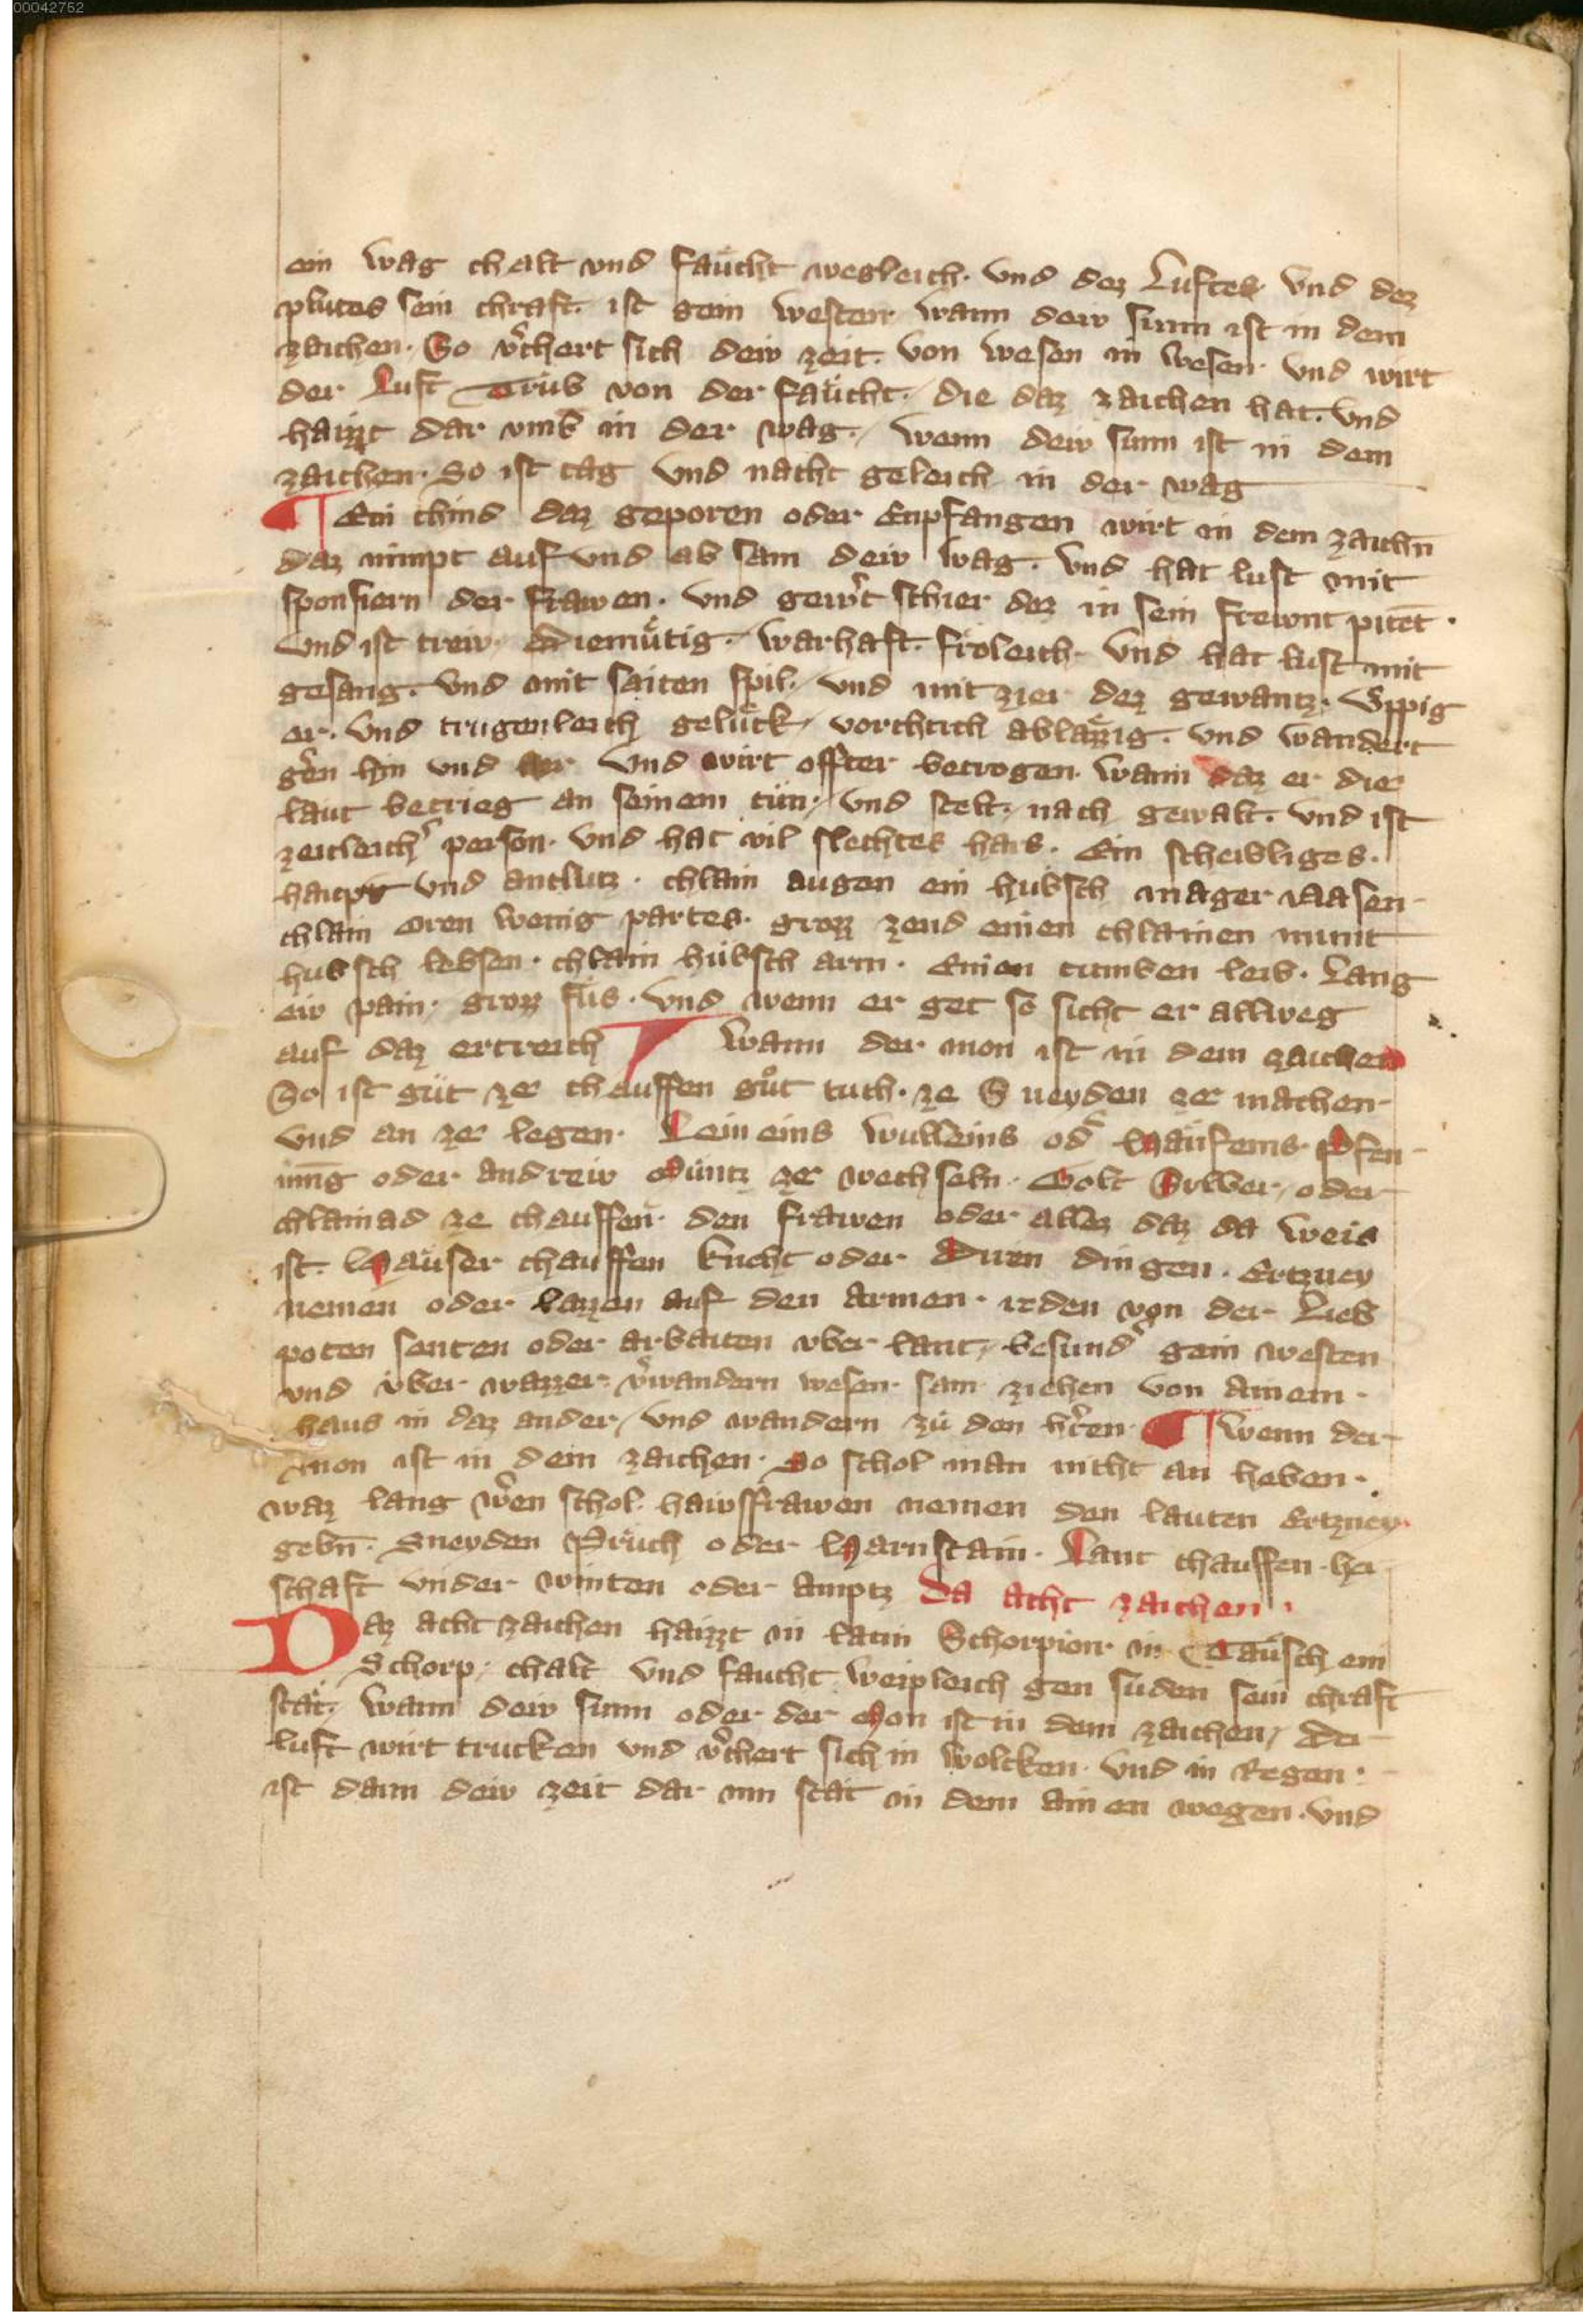 00042752
ein wag chalt vnd faücht wegleich. vnd dez Luftes vnd dez
plutes sein chraft. ist gein westen wann dew sunn ist in dem
zaichen. So v̾chert sich dew zeit. von wesen in wesen. vnd wirt
der Luft Trüb von der faücht. die daz zaichen hat. vnd
haizzt dar vmb in der wag. wenn dew sunn ist in dem
zaichen. So ist tag vnd nacht geleich in der wag
Ein chind daz geporen oder Enpfangen wirt in dem zaichn̄
daz nimpt auf vnd ab sam dew wag. vnd hat lust mit
sponsiern der frawen. vnd gew̾t schier dez in sein frewnt pitēt.
vnd ist trew. diemütig. warhaft. fröleich. vnd hat lust mit
gesang. vnd mit saiten spil. vnd mit zier dez gewantz. vppig
er. vnd trugenleich gelück vorchtich ablazzig. vnd wandert
gern hin vnd her vnd wirt offter betrogen. wann daz er die
laut betrieg an seinem tün. vnd stelt. nach gewalt. vnd ist
zeitleich̾ person. vnd hat vil slechtes hars. Ein scheibliges.
haupt vnd antlutz. chlain augen ein hubsch mager nasen
chlain oren wenig partes. grozz zend einen chlainen munt
hubsch lebsen. chlain hübsch arm. Einen tumben leib. Lang
ew pain. grozz füs. vnd wenn er get so sicht er allweg
auf daz ertreich wann der mon ist in dem zaichen
So ist güt ze chauffen gůt tuch. ze Sneyden ze machen
vnd an ze legen. Lein eins wulleins od̾ Haüfeins. Pfen
inn̄g oder andrew Müntz ze wechseln. Golt Silber, oder
chlainad ze chauffen. den frawen oder allez daz da weis
ist. Haüser chauffen knecht oder Diren dingen. Ertzney
nemen oder lazzen auf den armen. reden von der Lieb
poten senten oder arbaiten vber lant, besund̾ gein westen
vnd vber wazzer. v̾wandern wesen. sam ziehen von ainem.
haus in daz ander, vnd wandern zu den h̾ren. wenn der
mon ist in dem zaichen. So schol man nicht an heben.
waz lang w̾en schol. hawsfrawen nemen den lauten Ertzney
gebn̄. Sneyden Prüch oder Harnstain. Lant chauffen. her
schaft vnder winten oder amptz Da acht zaichen.
Daz acht zaichen haizzt in latin Schorpion in Taüsch ein
Schorp. chalt vnd faucht weipleich gen suden sein chraft
stät. wann dew sunn oder der Mon ist in dem zaichen, der
luft wirt trucken vnd v̾chert sich in wolcken. vnd in Regen.
ist dann dew zeit dar inn stät in dem ainen wegen. vnd